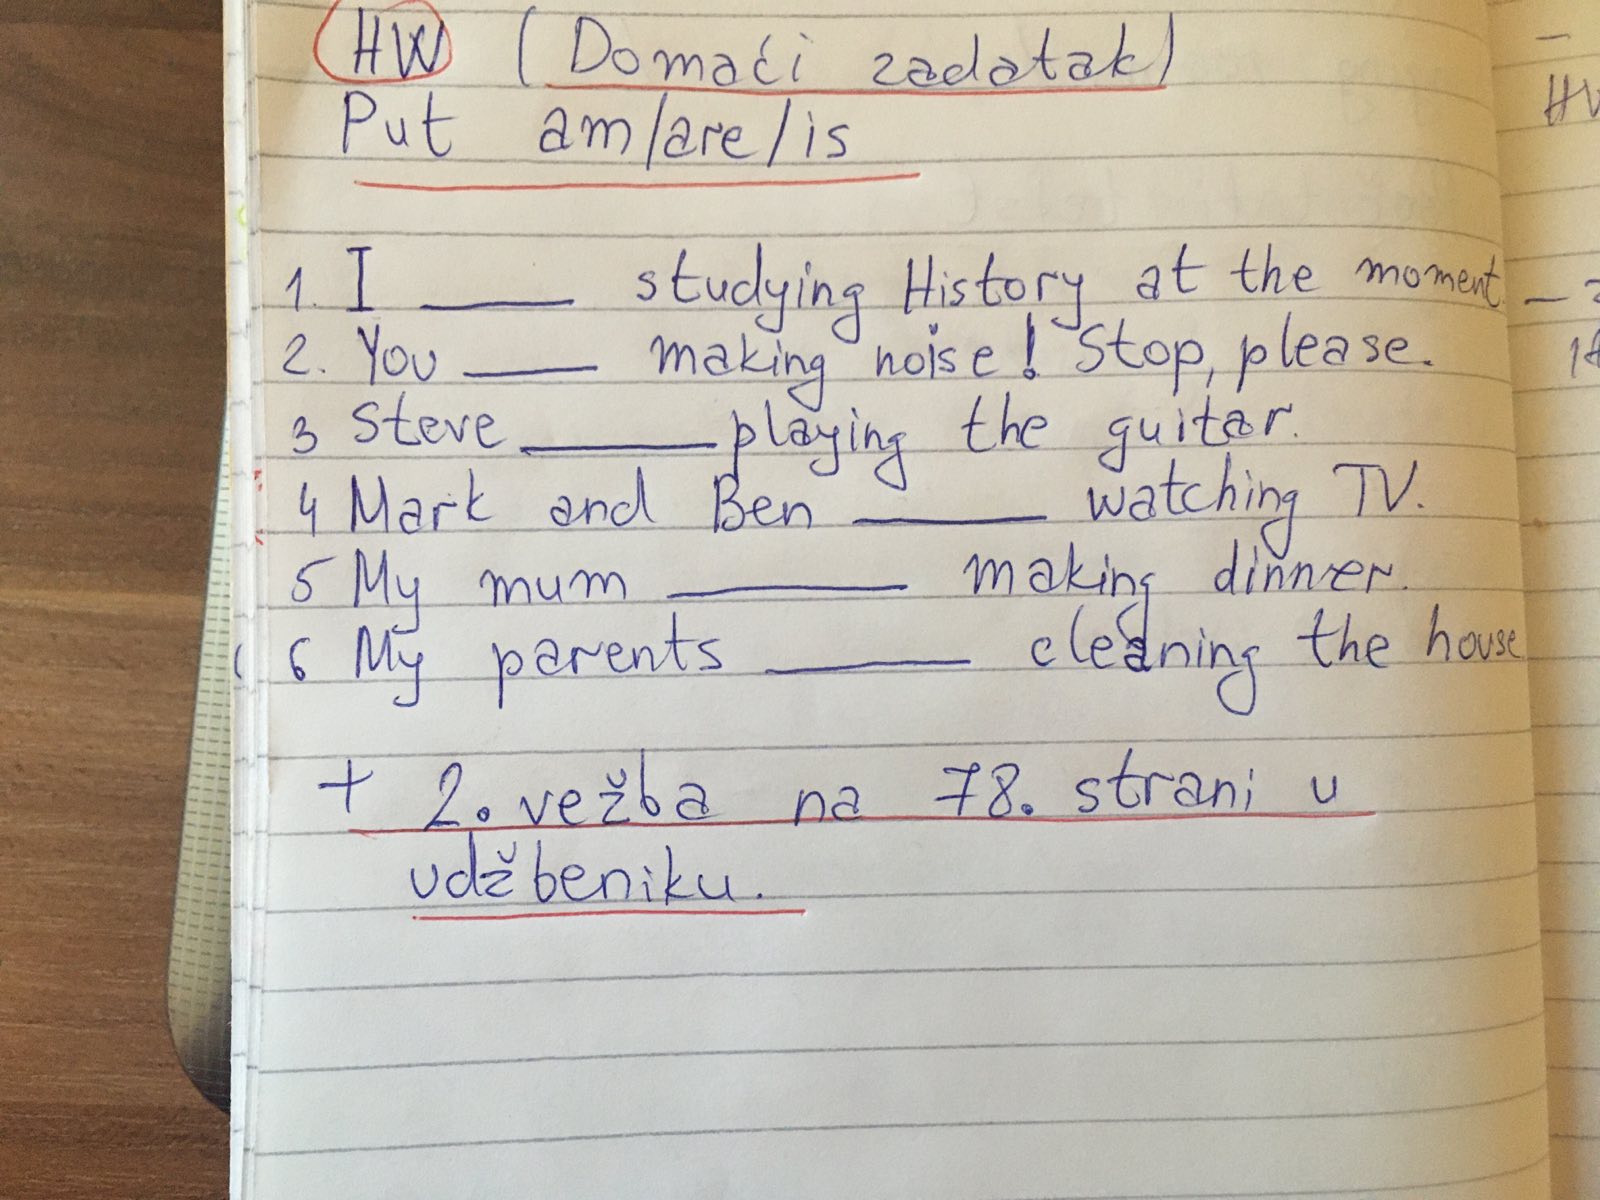 HW (Domaći zadatak)
Put am/are/is
1. I ____ studying History at the moment.
2. You ____ making noise! Stop, please.
3 Steve ____ playing the guitar.
4 Mark and Ben ____ watching TV.
5 My mum ____ making dinner.
6 My parents ____ cleaning the house
+ 2. vežba na 78. strani u
udžbeniku.